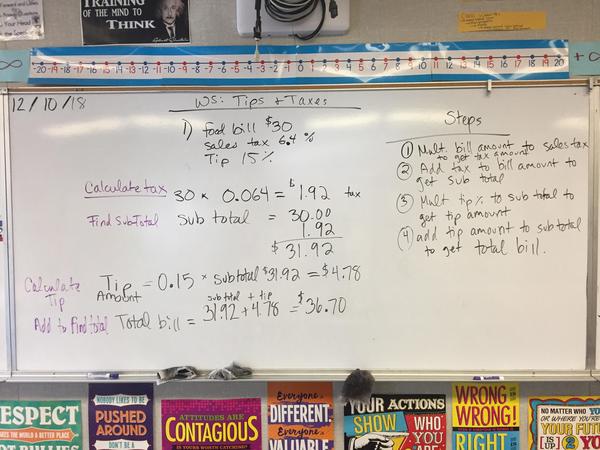 TRAINING
OF THE MIND TO
THINK
-20 -19 -18 -17 -16 -15 -14 -13 -12 -11 -10 -9 -8 -7 -6 -5 -4 -3 -2 -1 0 1 2 3 4 5 6 7 8 9 10 11 12 13 14 15 16 17 18 19 20
12/10/18
WS: Tips + Taxes
1) food bill $30
sales tax 6.4 %
Tip 15%
Calculate tax 30 × 0.064 = $1.92 tax
Find SubTotal Sub total = 30.00
1.92
$31.92
Calculate Tip
Tip Amount = 0.15 × subtotal $31.92 = $4.78
subtotal + tip
Add to Find total Total bill = 31.92 + 4.78 = $36.70
Steps
① Mult. bill amount to sales tax
to get tax amount
② Add tax to bill amount to
get sub total
③ Mult tip % to sub total to
get tip amount
④ add tip amount to subtotal
to get total bill.
RESPECT
MAKES THE WORLD A BETTER PLACE
NOBODY LIKES TO BE
PUSHED
AROUND
DON'T BE A
ATTITUDES ARE
CONTAGIOUS
IS YOURS WORTH CATCHING?
Everyone is
DIFFERENT.
Everyone is
VALUABLE
YOUR ACTIONS
SHOW
WHO
YOU
ARE
WRONG
WRONG!
RIGHT
NO MATTER WHO YOU
OR WHERE YOU'RE
YOUR FUTURE
IS UP 2 YOU